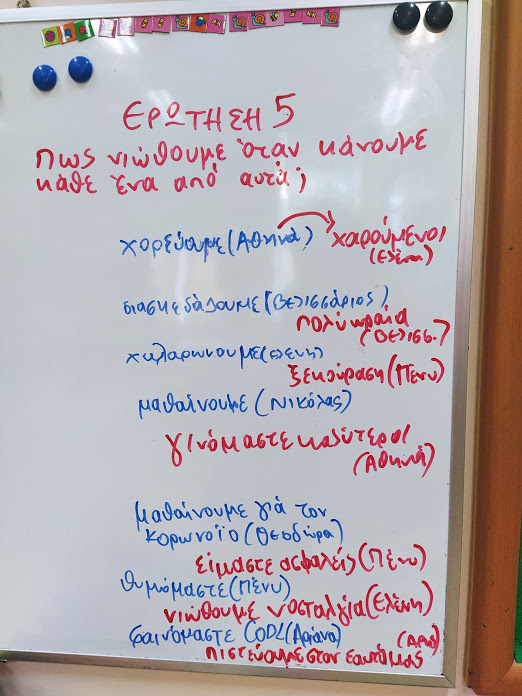 ΕΡΩΤΗΣΗ 5
Πως νιώθουμε όταν κάνουμε
κάθε ένα από αυτά;
χορεύουμε (Αθηνά) χαρούμενοι
(Ελένη)
διασκεδάζουμε (Βελισσάριος)
πολύ ωραία
(Βελισσ.)
χαλαρώνουμε (ελένη)
ξεκούραση (Πένυ)
μαθαίνουμε (Νικόλας)
γινόμαστε καλύτεροι
(Αθηνά)
μαθαίνουμε για τον
κορωνοϊο (Θεοδώρα)
είμαστε ασφαλείς (Πένυ)
θυμόμαστε (Πένυ)
νιώθουμε νοσταλγία (Ελένη)
φαινόμαστε COOL (Αριάνα)
πιστεύουμε στον εαυτό μας